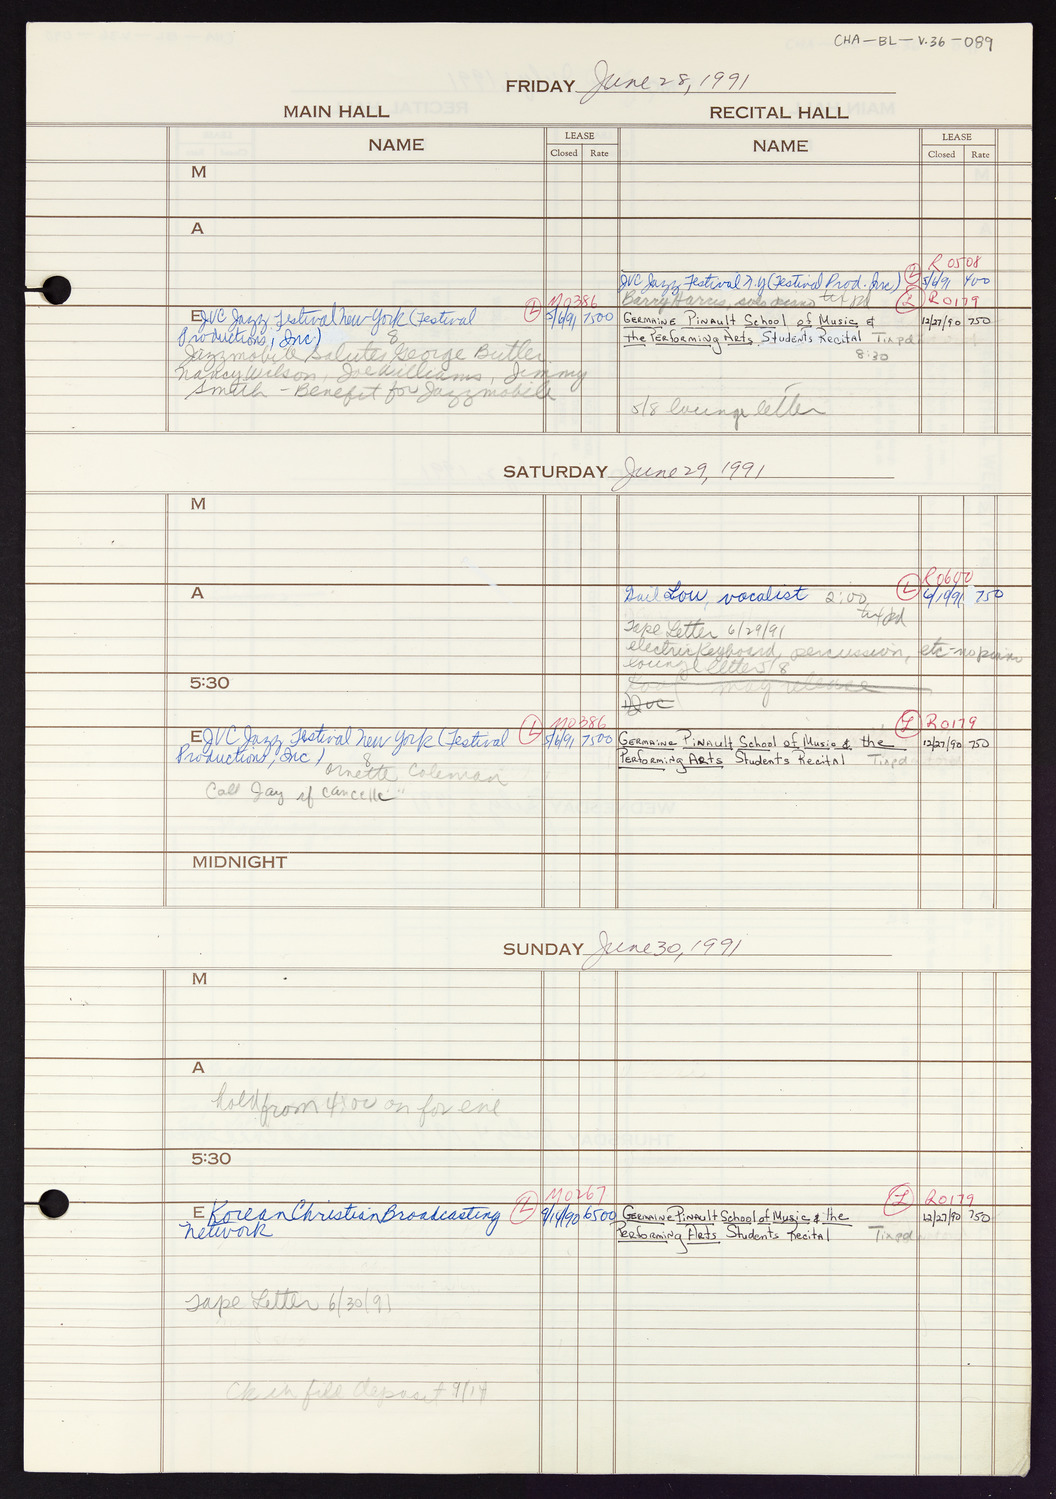 CHA-BL-V.36-089
FRIDAY June 28, 1991
MAIN HALL RECITAL HALL
NAME LEASE Closed Rate NAME LEASE Closed Rate
M
A
R0508
JVC Jazz Festival N.Y (Festival Prod. Inc) L 5/6/91 400
Barry Harris, solo piano tix pd L R0179
M0386
E JVC Jazz Festival New York (Festival L 5/6/91 7500
Productions, Inc) 8
Jazzmobile Salutes George Butler
Nancy Wilson, Joe Williams, Jimmy
Smith - Benefit for Jazzmobile
Germaine Pinault School of Music & 12/27/90 750
the Performing Arts Students Recital Tixpd
8:30
5/8 lounge letter
SATURDAY June 29, 1991
M
R0600
A Gail Lou, vocalist 2:00 L 750
tix pd
Tape Letter 6/29/91
electric keyboard, percussion, etc-no piano
lounge letter 5/8
may release
JVC
5:30
M0386
E JVC Jazz Festival New York (Festival L 5/6/91 7500
Productions, Inc) 8
Ornette Coleman
Call Jay if cancelle
L R0179
Germaine Pinault School of Music & the 12/27/90 750
Performing Arts Students Recital Tixpd
MIDNIGHT
SUNDAY June 30, 1991
M
A
hold from 4:00 on for eve
5:30
M0267
E Korean Christian Broadcasting L 9/14/90 6500
Network
L R0179
Germaine Pinault School of Music & the 12/27/90 750
Performing Arts Students Recital Tixpd
Tape Letter 6/30/91
Ck in file deposit 9/14